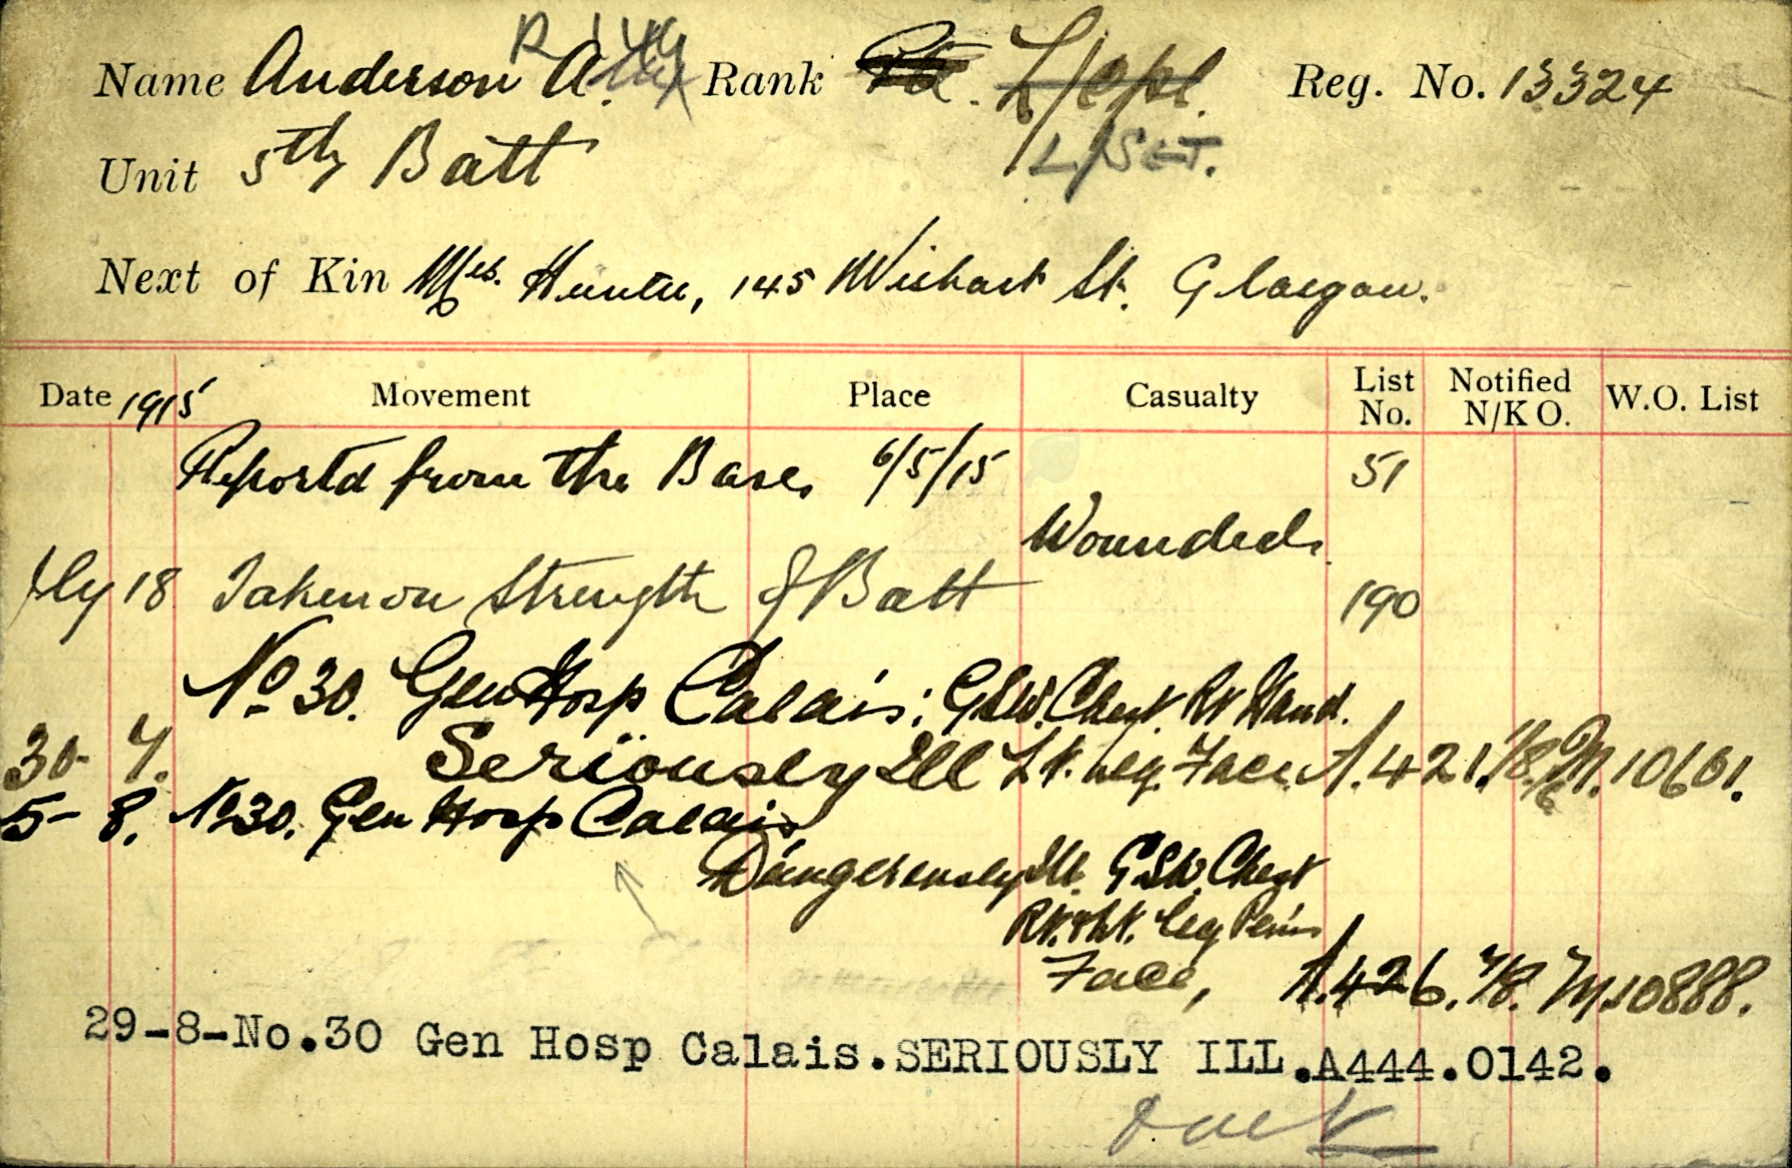 Name Anderson A. Rank Pte. L/Cpl. Reg. No. 13324
Unit 5th Batt L/SGT.
Next of Kin Mrs. Hunter, 145 Wishart St. Glasgow.
Date 1915 Movement Place Casualty List No. Notified N/K O. W.O. List
Reported from the Base, 6/5/15 51
Wounded.
Jly 18 Taken on Strength of Batt 190
No 30. Gen Hosp Calais; GSW. Chest Rt Hand.
30- 7. Seriously Ill Lt. Leg. Face. A.421. M.10601.
5- 8. No 30. Gen Hosp Calais
Dangerously Ill. GSW. Chest
Rt. & Lt. Leg Penis
Face, A.426. 7/8. M.10888.
29-8-No.30 Gen Hosp Calais.SERIOUSLY ILL.A444.0142.
over